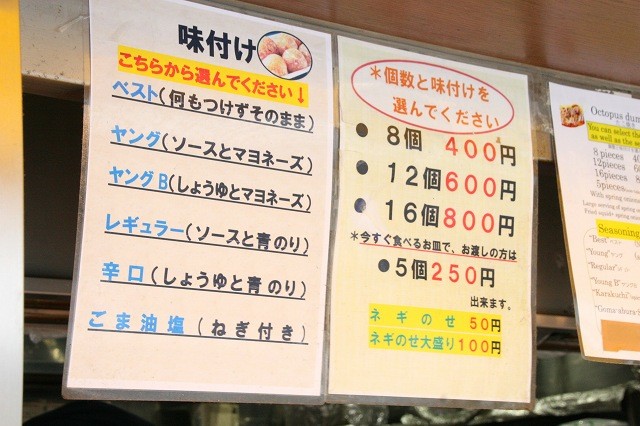 味付け
こちらから選んでください↓
ベスト(何もつけずそのまま)
ヤング(ソースとマヨネーズ)
ヤングB(しょうゆとマヨネーズ)
レギュラー(ソースと青のり)
辛口(しょうゆと青のり)
ごま油塩(ねぎ付き)
*個数と味付けを
選んでください
● 8個 400円
● 12個600円
● 16個800円
*今すぐ食べるお皿で、お渡しの方は
●5個250円
出来ます。
ネギのせ 50円
ネギのせ大盛り100円
Octopus dum
You can select the
as well as the se
8 pieces 40
12pieces
16pieces
5pieces
With spring onion
Large serving of spring
Seasoning
"Best"
"Young"
"Regular"
"Young B"
"Karakuchi"